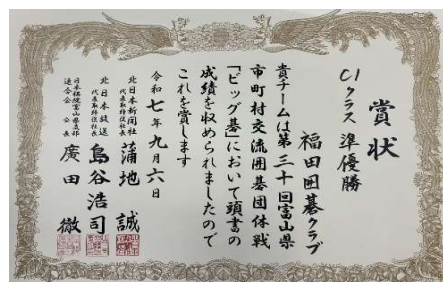 賞状
C1クラス 準優勝
福田囲碁クラブ
貴チームは第三十回富山県
市町村交流囲碁団体戦
「ビッグ碁」において頭書の
成績を収められましたので
これを賞します
令和七年九月六日
北日本新聞社
代表取締役社長 蒲地 誠
北日本放送
代表取締役社長 鳥谷浩司
日本棋院富山県支部
連合会 会長 廣田 徹